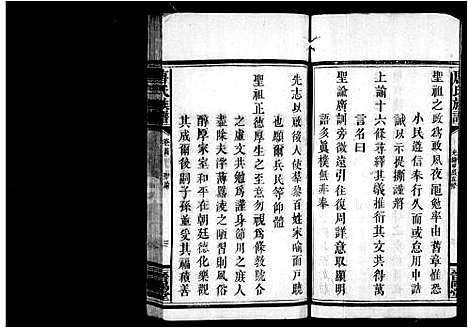 聖祖之政為政夙夜黽勉率由舊章惟恐
小民遵信奉行久而或怠
誠以示提撕謹將
上諭十六條尋繹其義推衍其文共得萬
言名曰
聖諭廣訓旁徵遠引往復周詳意取顯明
語多質樸無非奉
先志以啟後人使羣黎百姓家喻而戶曉
也願爾兵民等仰體
聖祖正德厚生之至意勿視為條教號令
之虛文共為謹身節用之庶人
盡除夫浮薄囂凌之陋習則風俗
醇厚家室和平在朝廷德化樂觀
其成爾後嗣子孫並受其福積善